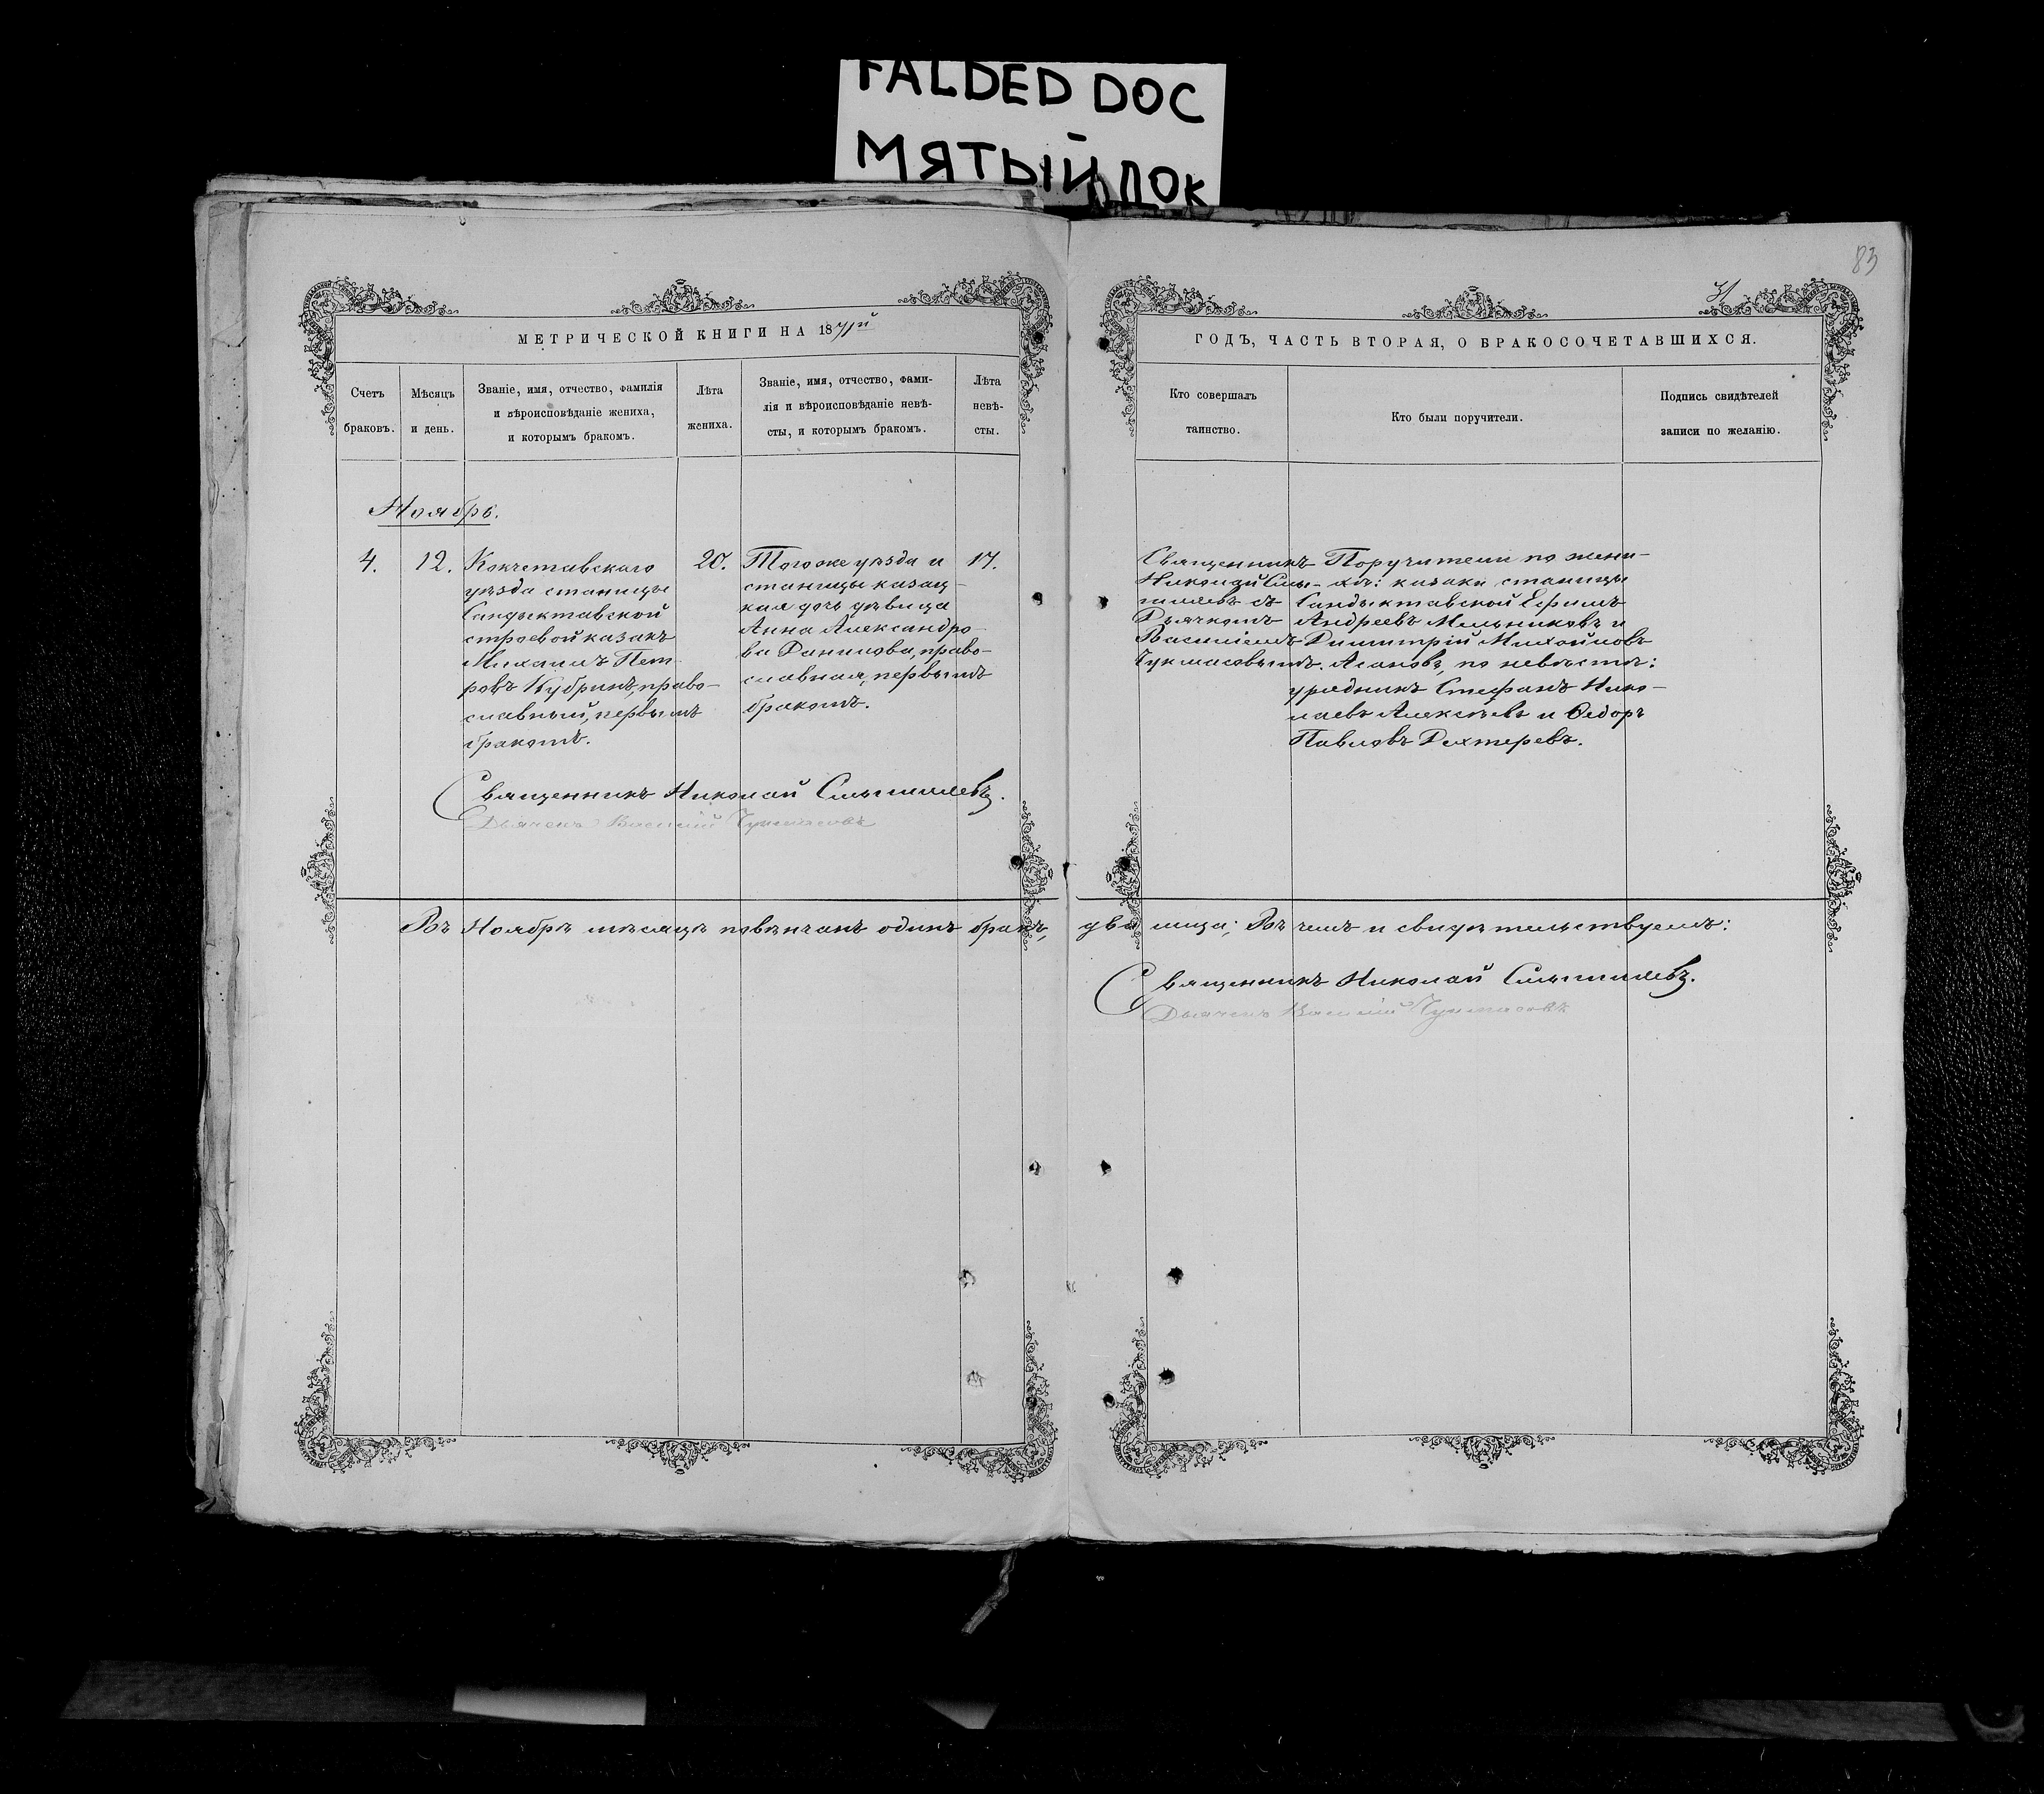 FALDED DOC
МЯТЫЙ ДОК
83
31
МЕТРИЧЕСКОЙ КНИГИ НА 1871й
ГОДЪ, ЧАСТЬ ВТОРАЯ, О БРАКОСОЧЕТАВШИХСЯ.
Счетъ
браковъ.
Мѣсяцъ
и день.
Званіе, имя, отчество, фамилія
и вѣроисповѣданіе жениха,
и которымъ бракомъ.
Лѣта
жениха.
Званіе, имя, отчество, фами-
лія и вѣроисповѣданіе невѣ-
сты, и которымъ бракомъ.
Лѣта
невѣ-
сты.
Кто совершалъ
таинство.
Кто были поручители.
Подпись свидѣтелей
записи по желанію.
Ноябрь.
4.
12.
Кокчетавскаго
уѣзда станицы
Сандыктавской
строевой казакъ
Михаилъ Пет-
ровъ Кубринъ, право-
славный, первымъ
бракомъ.
20.
Того же уѣзда и
станицы казац-
кая дочь дѣвица
Анна Александро-
ва Данилова, право-
славная, первымъ
бракомъ.
17.
Священникъ
Николай Смы-
шляевъ съ
Дьячкомъ
Василіемъ
Чукмасовымъ.
Поручители по жени-
хѣ: казаки станицы
Сандыктавской Ефимъ
Андреевъ Мельниковъ и
Димитрій Михайловъ
Агановъ, по невѣстѣ:
урядникъ Стефанъ Нико-
лаевъ Алексѣевъ и Ѳедоръ
Павловъ Дехтеревъ.
Священникъ Николай Смышляевъ.
Дьячекъ Василій Чукмасовъ
Въ Ноябрѣ мѣсяцѣ повѣнчанъ одинъ бракъ, два лица; Въ чемъ и свидѣтельствуемъ:
Священникъ Николай Смышляевъ.
Дьячекъ Василій Чукмасовъ